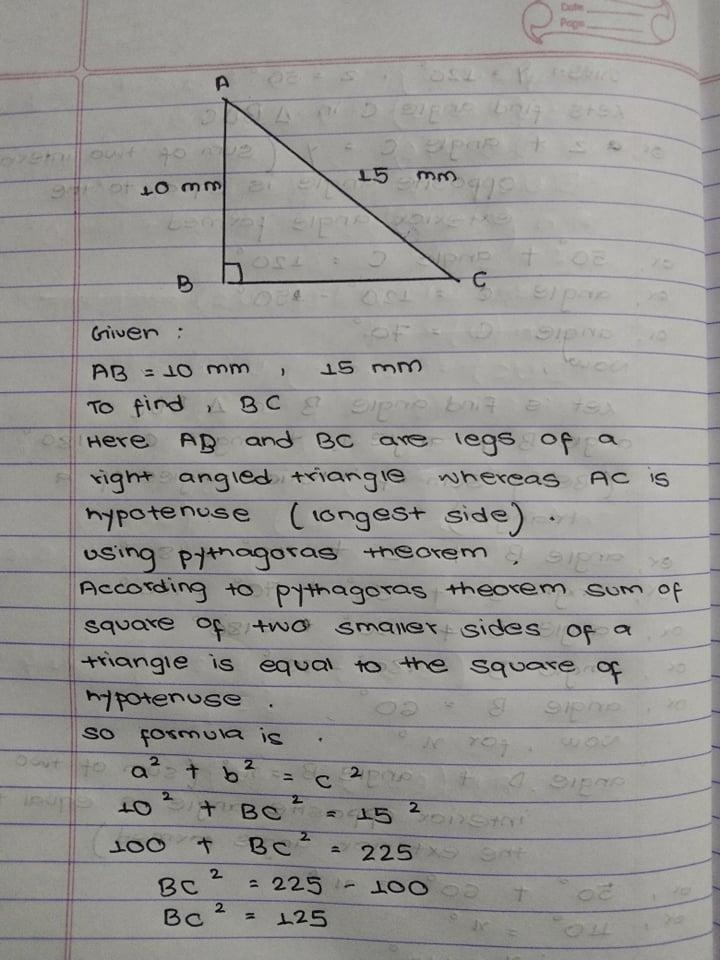 Date
Page
A
10 mm
15 mm
B
C
Given :
AB = 10 mm , 15 mm
To find , BC
Here AB and BC are legs of a
right angled triangle whereas AC is
hypotenuse (longest side) .
using pythagoras theorem .
According to pythagoras theorem sum of
square of two smaller sides of a
triangle is equal to the square of
hypotenuse .
so formula is .
a² + b² = c²
10² + BC² = 15²
100 + BC² = 225
BC² = 225 - 100
BC² = 125